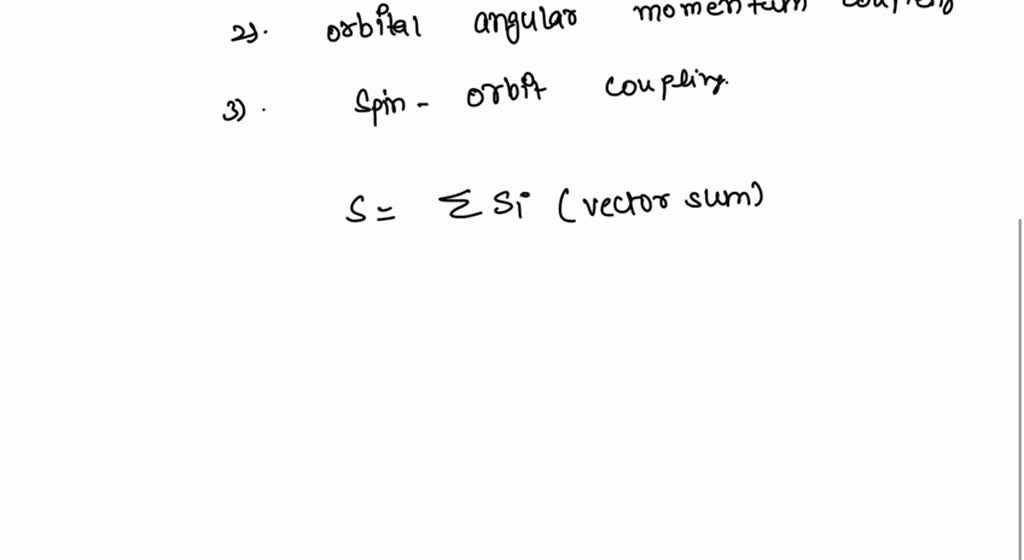 2). orbital angular momentum coupling
3). Spin - orbit coupling.
S = Σ Si (vector sum)